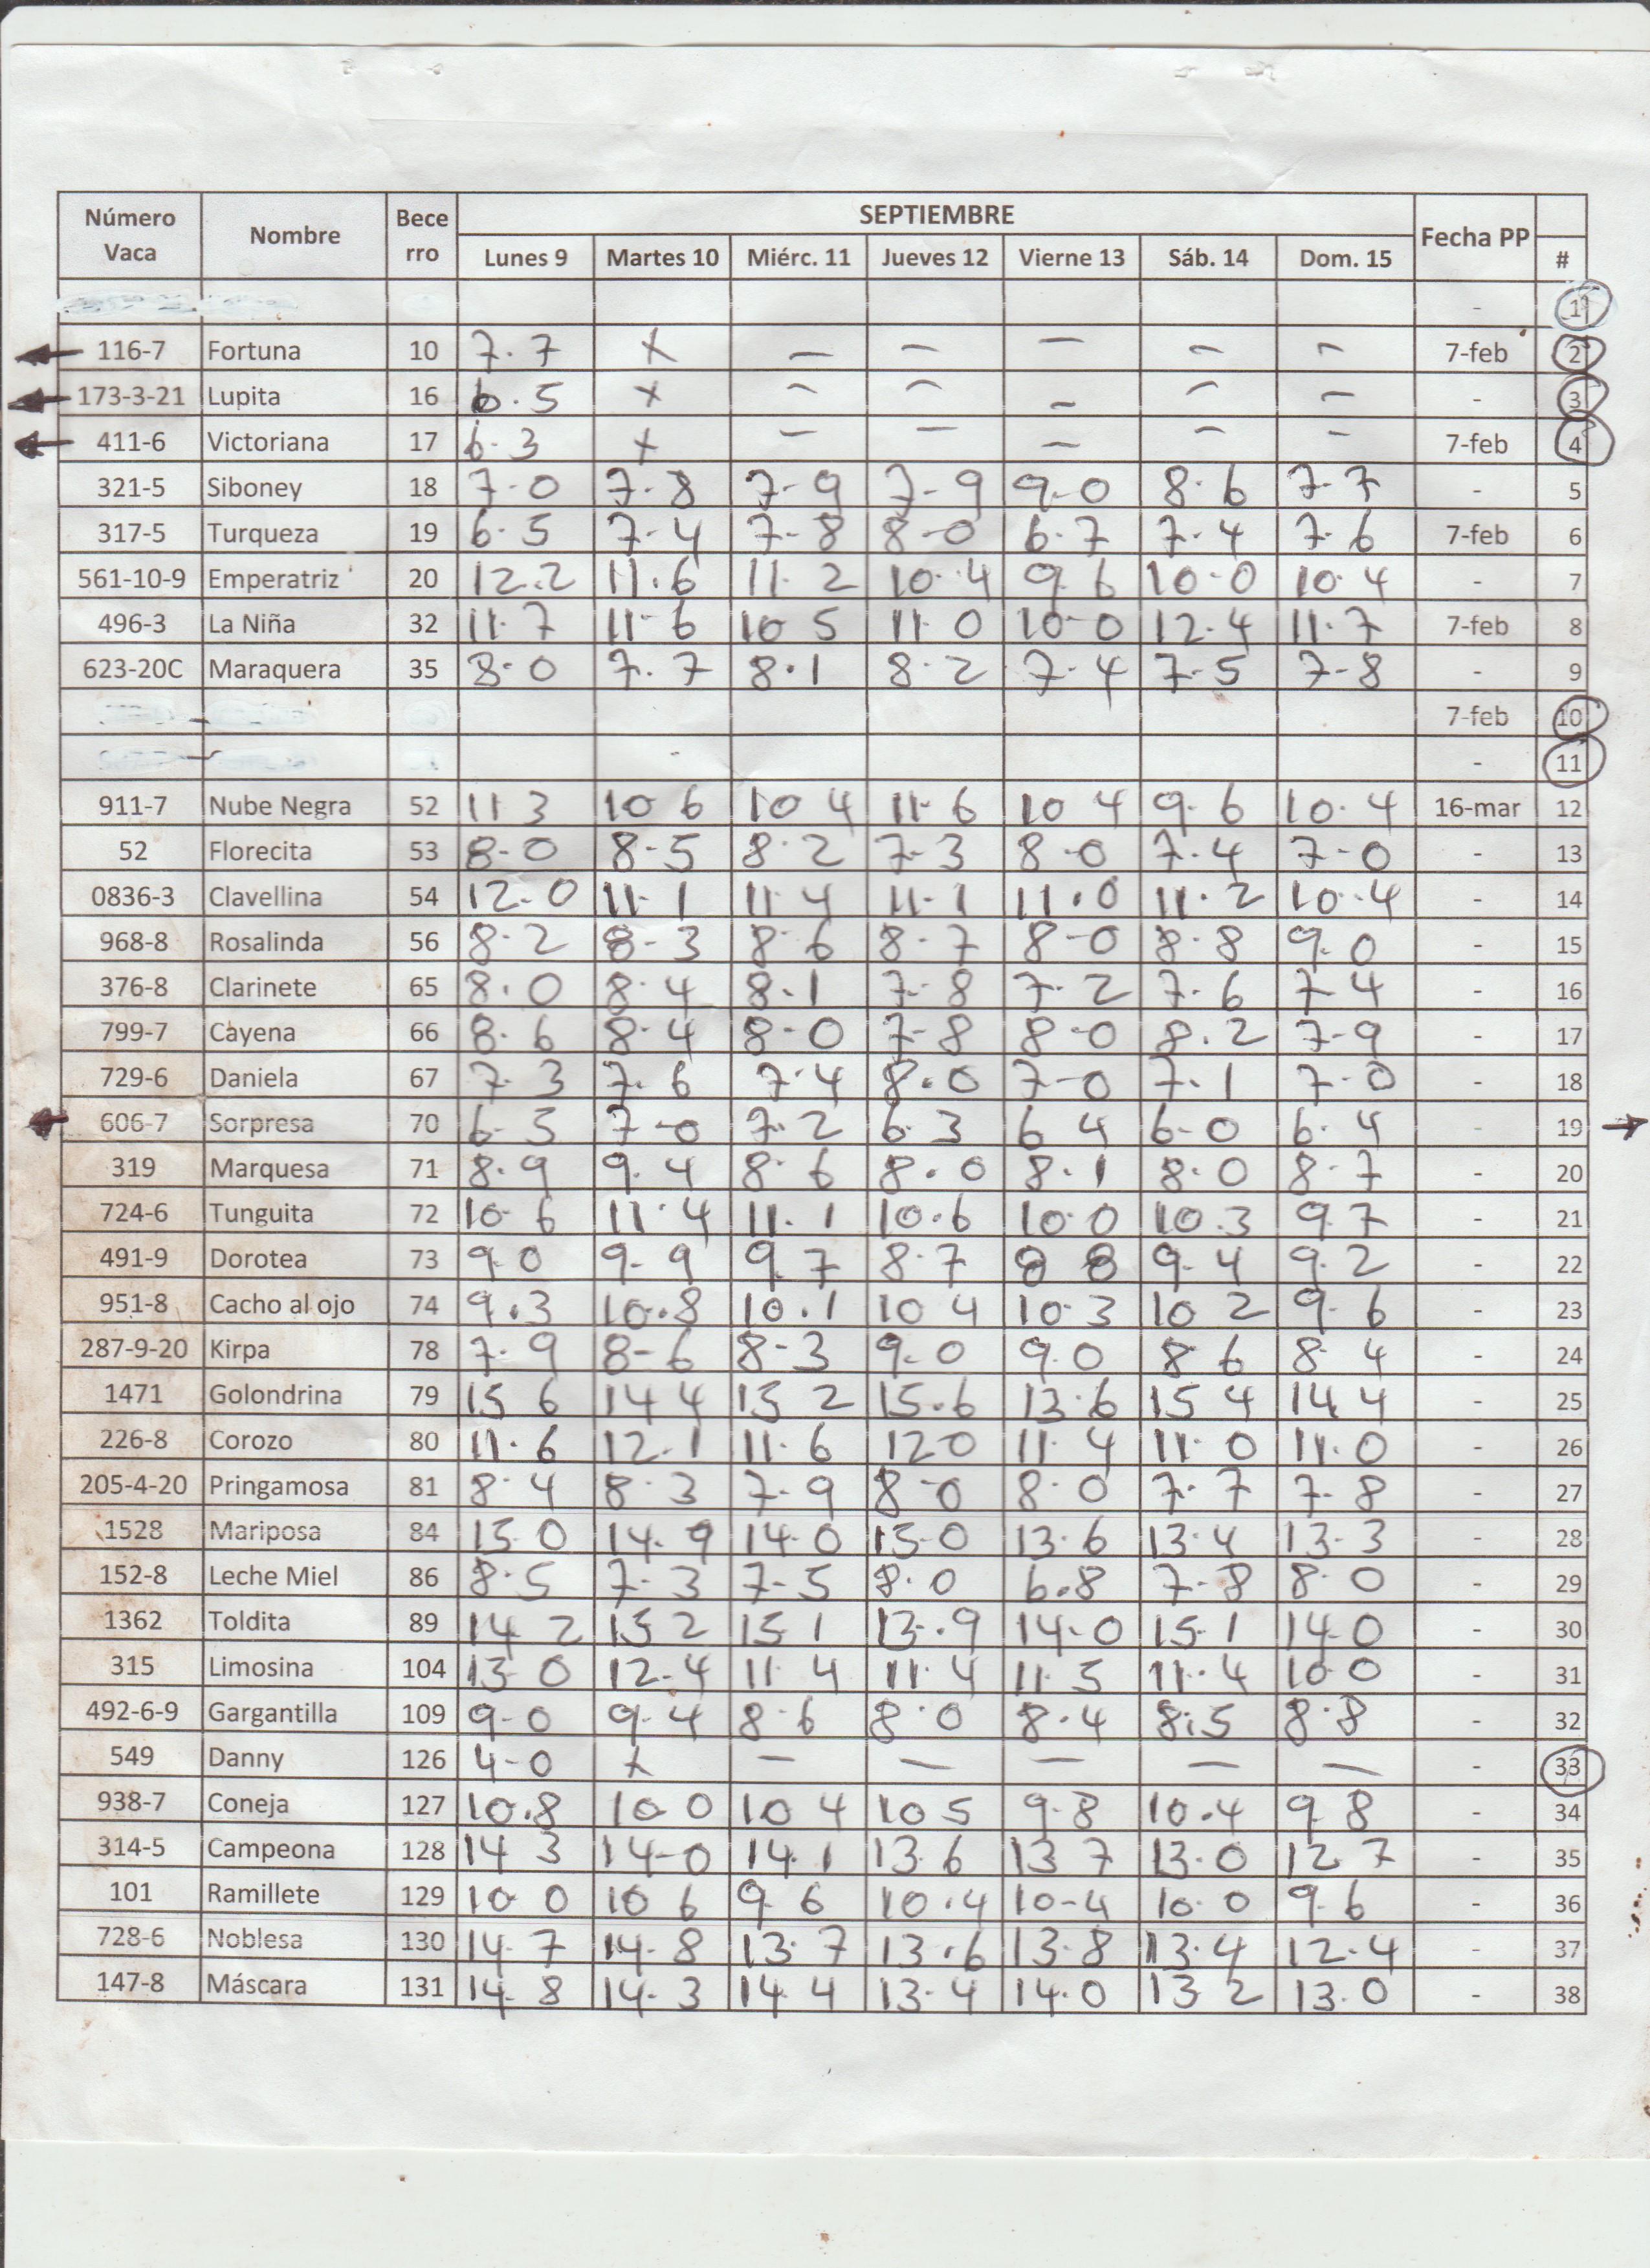 Número Vaca Nombre Becerro SEPTIEMBRE Fecha PP #
Lunes 9 Martes 10 Miérc. 11 Jueves 12 Vierne 13 Sáb. 14 Dom. 15
- 1
116-7 Fortuna 10 7.7 x – – – – – 7-feb 2
173-3-21 Lupita 16 6.5 x – – – – – - 3
411-6 Victoriana 17 6.3 x – – – – – 7-feb 4
321-5 Siboney 18 7.0 7.8 7-9 7-9 9.0 8.6 7.7 - 5
317-5 Turqueza 19 6.5 7-4 7-8 8-0 6.7 7.4 7.6 7-feb 6
561-10-9 Emperatriz 20 12.2 11.6 11.2 10.4 9.6 10.0 10.4 - 7
496-3 La Niña 32 11.7 11-6 10 5 11.0 10-0 12.4 11.7 7-feb 8
623-20C Maraquera 35 8.0 7.7 8.1 8.2 7.4 7.5 7-8 - 9
7-feb 10
- 11
911-7 Nube Negra 52 11 3 10 6 10 4 11-6 10 4 9.6 10.4 16-mar 12
52 Florecita 53 8-0 8-5 8.2 7-3 8.0 7.4 7-0 - 13
0836-3 Clavellina 54 12.0 11-1 11.4 11-1 11.0 11.2 10.4 - 14
968-8 Rosalinda 56 8.2 8-3 8.6 8.7 8-0 8.8 9.0 - 15
376-8 Clarinete 65 8.0 8.4 8.1 7-8 7.2 7.6 7-4 - 16
799-7 Cayena 66 8.6 8-4 8-0 7-8 8-0 8.2 7-9 - 17
729-6 Daniela 67 7.3 7.6 7.4 8.0 7-0 7.1 7.0 - 18
606-7 Sorpresa 70 6-5 7-0 7.2 6.3 6 4 6-0 6.4 - 19
319 Marquesa 71 8.9 9.4 8.6 8.0 8.1 8.0 8.7 - 20
724-6 Tunguita 72 10.6 11.4 11.1 10.6 10.0 10.3 9.7 - 21
491-9 Dorotea 73 9.0 9-9 9.7 8.7 8 8 9-4 9.2 - 22
951-8 Cacho al ojo 74 9.3 10.8 10.1 10 4 10.3 10 2 9.6 - 23
287-9-20 Kirpa 78 7.9 8-6 8-3 9.0 9.0 8 6 8.4 - 24
1471 Golondrina 79 15 6 14 4 15 2 15.6 13.6 15 4 14 4 - 25
226-8 Corozo 80 11.6 12.1 11.6 12 0 11.4 11.0 11.0 - 26
205-4-20 Pringamosa 81 8.4 8.3 7-9 8-0 8.0 7.7 7-8 - 27
1528 Mariposa 84 15.0 14.9 14.0 15-0 13.6 13.4 13.3 - 28
152-8 Leche Miel 86 8.5 7-3 7-5 8.0 6.8 7-8 8.0 - 29
1362 Toldita 89 14 2 15 2 15 1 13.9 14.0 15.1 14.0 - 30
315 Limosina 104 13 0 12-4 11 4 11.4 11.5 11.4 10 0 - 31
492-6-9 Gargantilla 109 9-0 9-4 8.6 8.0 8.4 8.5 8.8 - 32
549 Danny 126 4-0 x – – – – – - 33
938-7 Coneja 127 10.8 10 0 10 4 10 5 9.8 10.4 9 8 - 34
314-5 Campeona 128 14 3 14-0 14.1 13.6 13 7 13.0 12 7 - 35
101 Ramillete 129 10 0 10 6 9.6 10.4 10-4 10.0 9.6 - 36
728-6 Noblesa 130 14.7 14.8 13.7 13.6 13.8 13.4 12.4 - 37
147-8 Máscara 131 14.8 14.3 14.4 13.4 14.0 13 2 13.0 - 38